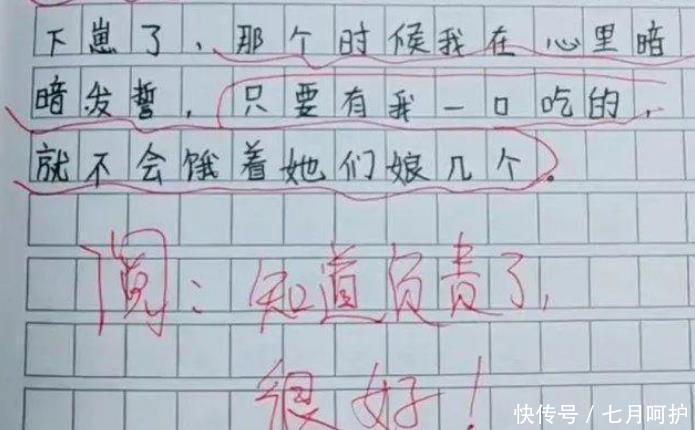 下崽了，那个时候我在心里暗
暗发誓，只要有我一口吃的，
就不会饿着她们娘几个。
阅：知道负责了，
很好！
快传号／七月呵护